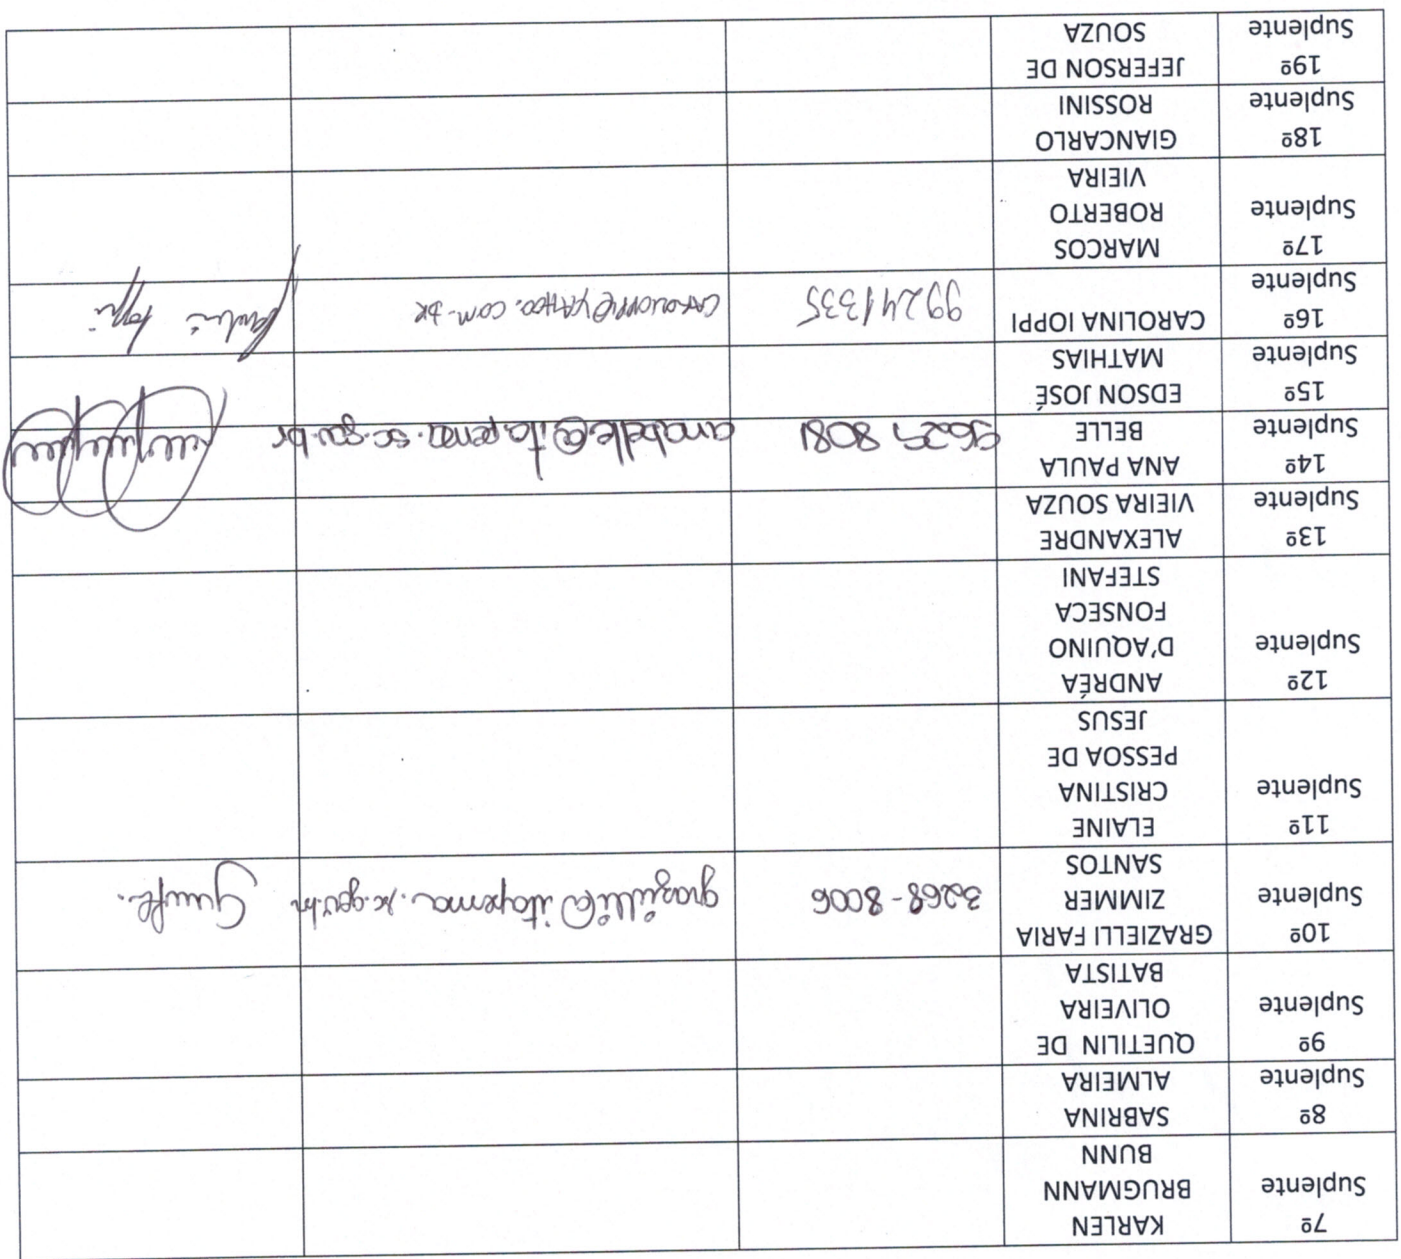 7º
Suplente
KARLEN
BRUGMANN
BUNN
8º
Suplente
SABRINA
ALMEIRA
9º
Suplente
QUETILIN DE
OLIVEIRA
BATISTA
10º
Suplente
GRAZIELLI FARIA
ZIMMER
SANTOS
3268-8006
grazielli@itapema.sc.gov.br
11º
Suplente
ELAINE
CRISTINA
PESSOA DE
JESUS
12º
Suplente
ANDRÉA
D'AQUINO
FONSECA
STEFANI
13º
Suplente
ALEXANDRE
VIEIRA SOUZA
14º
Suplente
ANA PAULA
BELLE
8081
anabelle@itapema.sc.gov.br
15º
Suplente
EDSON JOSÉ
MATHIAS
16º
Suplente
CAROLINA IOPPI
99241335
CAROLIOPPI@YAHOO.COM.BR
17º
Suplente
MARCOS
ROBERTO
VIEIRA
18º
Suplente
GIANCARLO
ROSSINI
19º
Suplente
JEFERSON DE
SOUZA